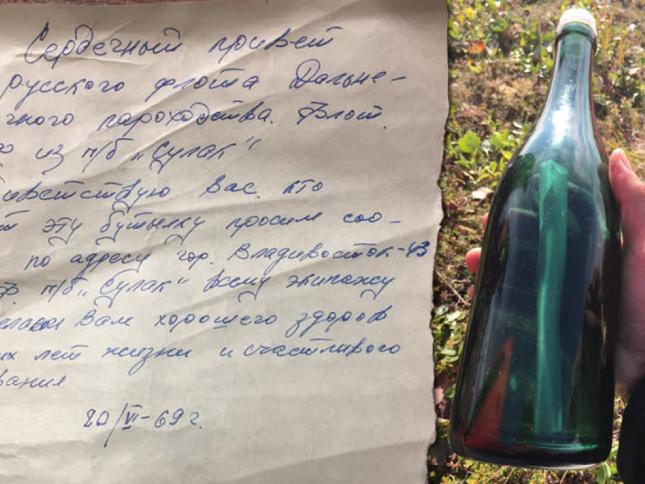 Сердечный привет
русского флота Дальне-
чного пароходства. Флот.
о из п/б „Сулак"
иветствую Вас. кто
т эту бутылку просим соо-
по адресу гор. Владивосток-43
п/б „Сулак" всему экипажу
елаем Вам хорошего здоров
их лет жизни и счастливого
вания
20/VI-69 г.